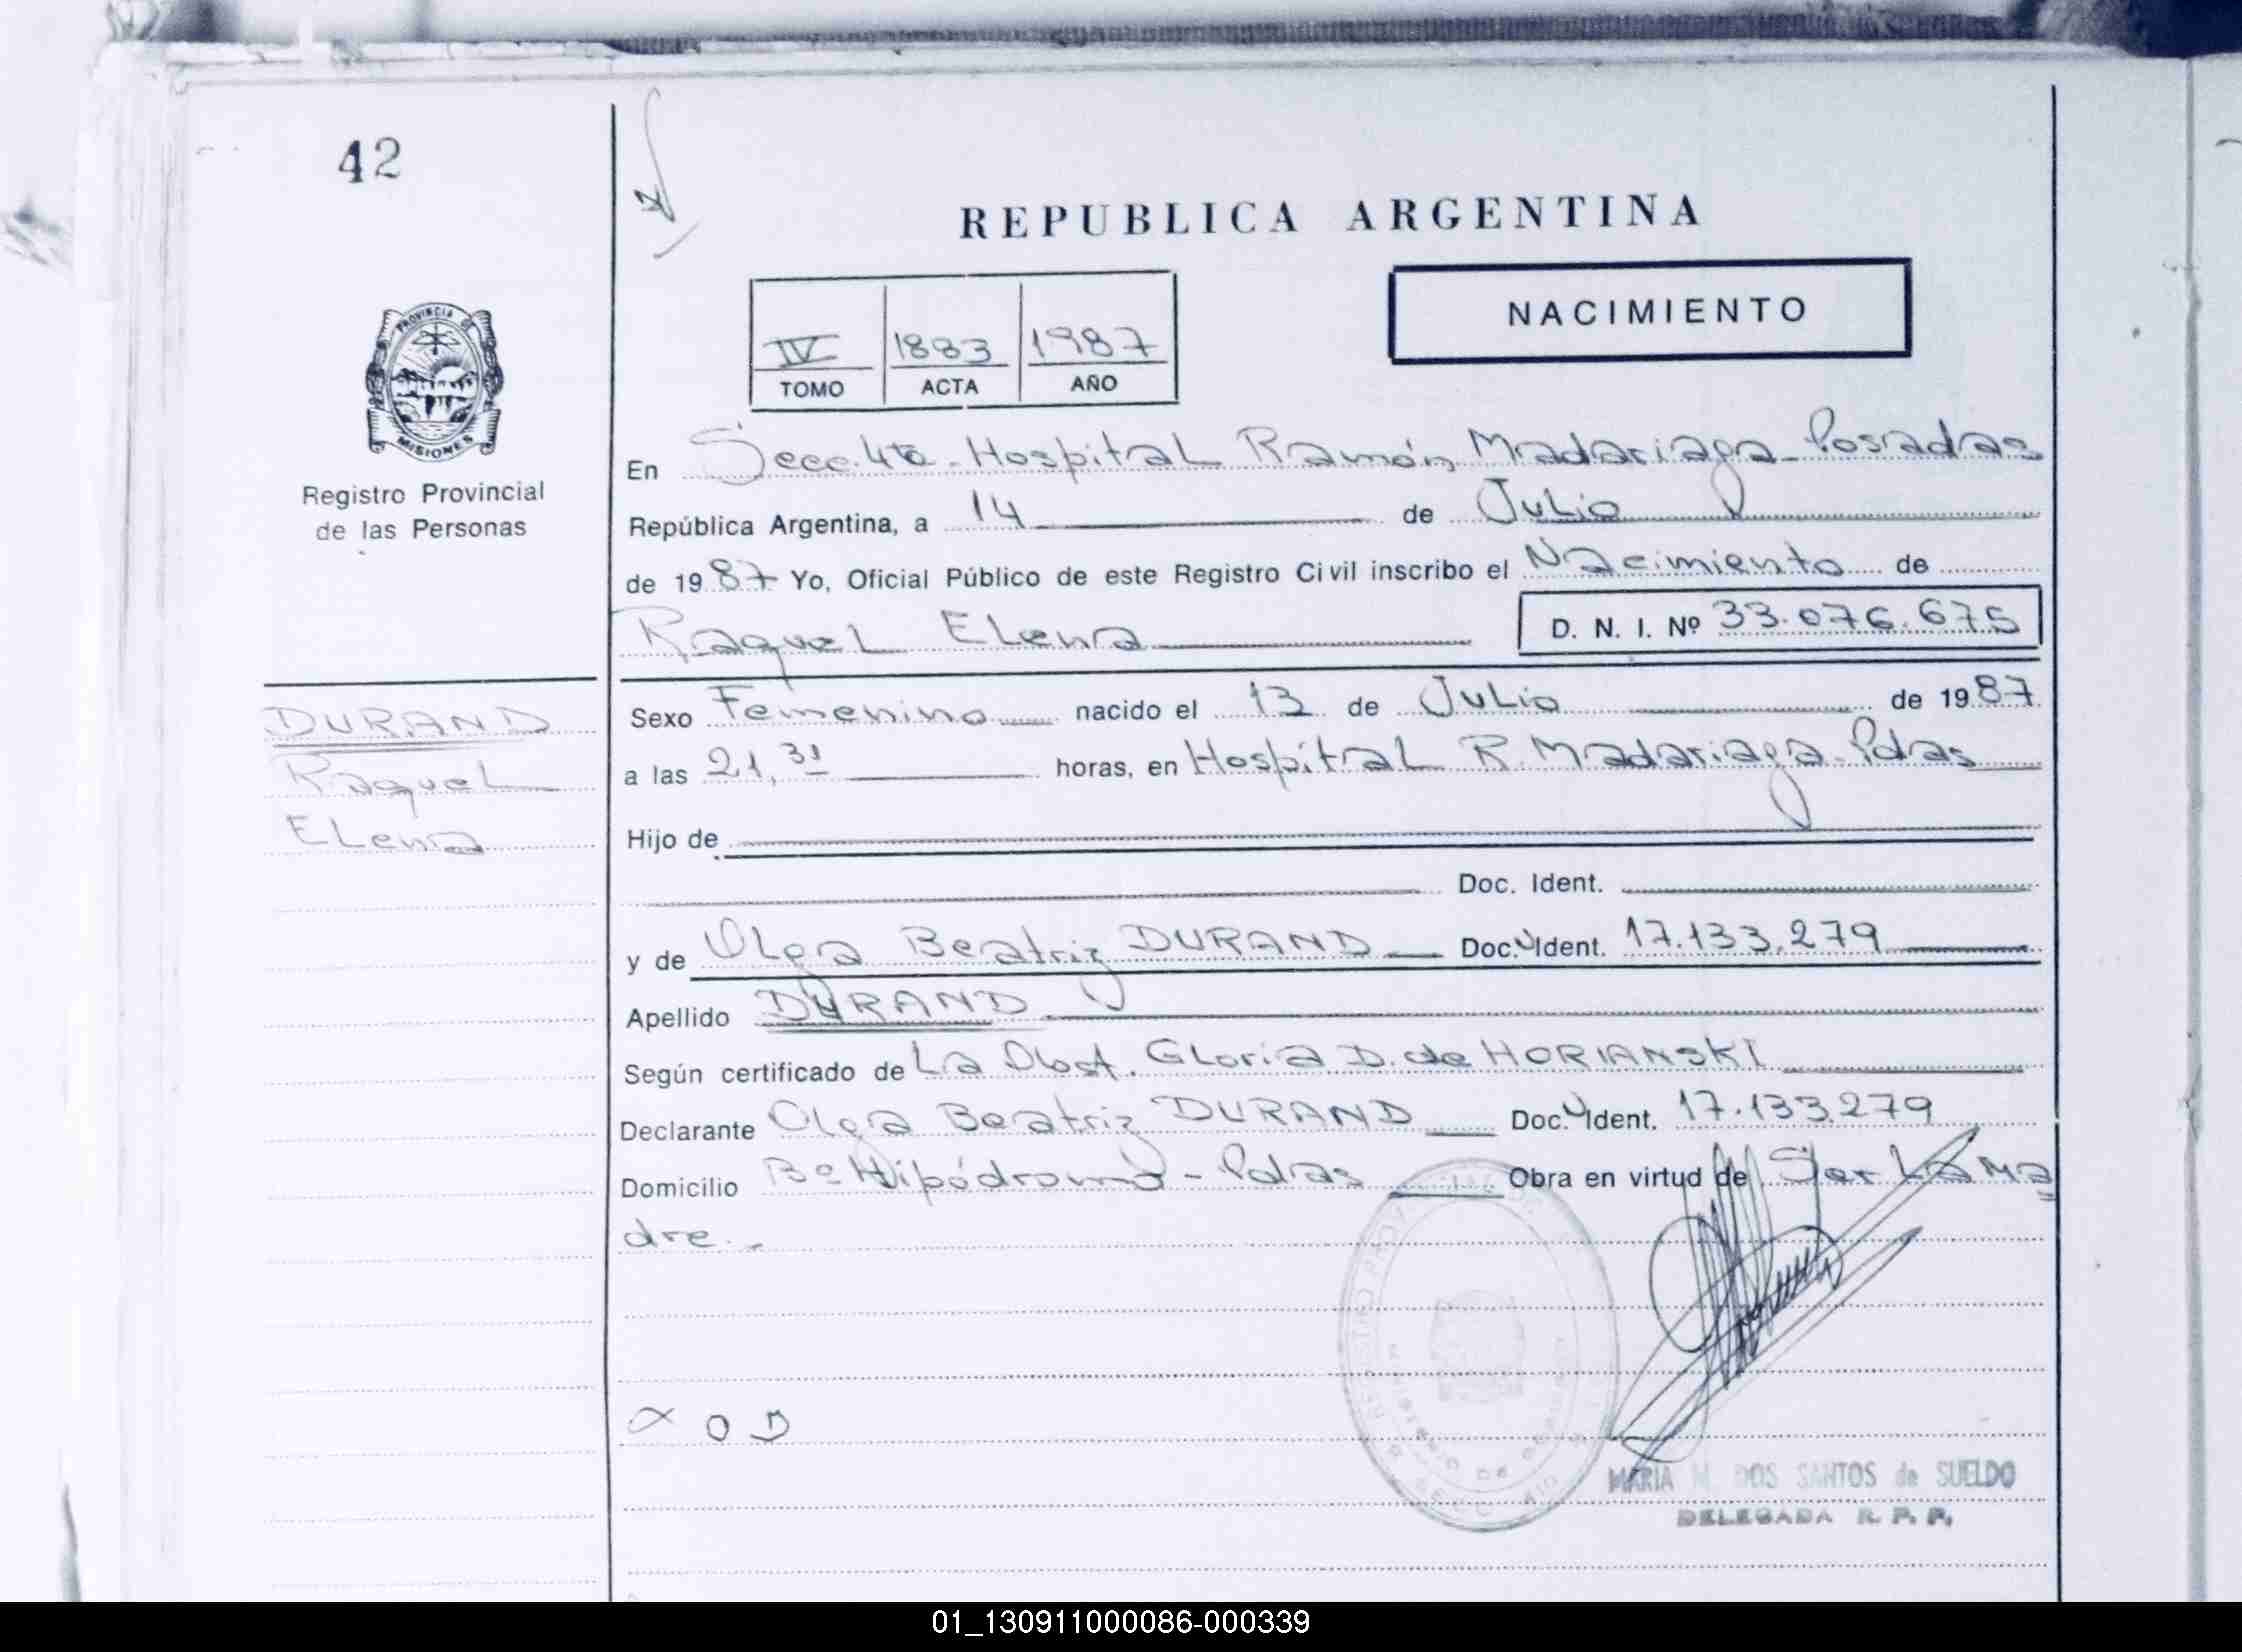 42
REPUBLICA ARGENTINA
NACIMIENTO
IV 1883 1987
TOMO ACTA AÑO
PROVINCIA DE
MISIONES
Registro Provincial
de las Personas
En Secc. 4ta - Hospital Ramón Madariaga - Posadas
República Argentina, a 14 de Julio
de 1987 Yo, Oficial Público de este Registro Civil inscribo el Nacimiento de
Raquel Elena D. N. I. Nº 33.076.675
DURAND
Raquel
Elena
Sexo Femenino nacido el 13 de Julio de 1987
a las 21,31 horas, en Hospital R. Madariaga - Pdas
Hijo de
Doc. Ident.
y de Olga Beatriz DURAND Doc. Ident. 17.133.279
Apellido DURAND
Según certificado de La Obst. Gloria D. de HORIANSKI
Declarante Olga Beatriz DURAND Doc. Ident. 17.133.279
Domicilio Bº Hipódromo - Pdas Obra en virtud de Ser La Ma
dre.-
x O D
MARIA M. DOS SANTOS de SUELDO
DELEGADA R. P. P.
01_130911000086-000339